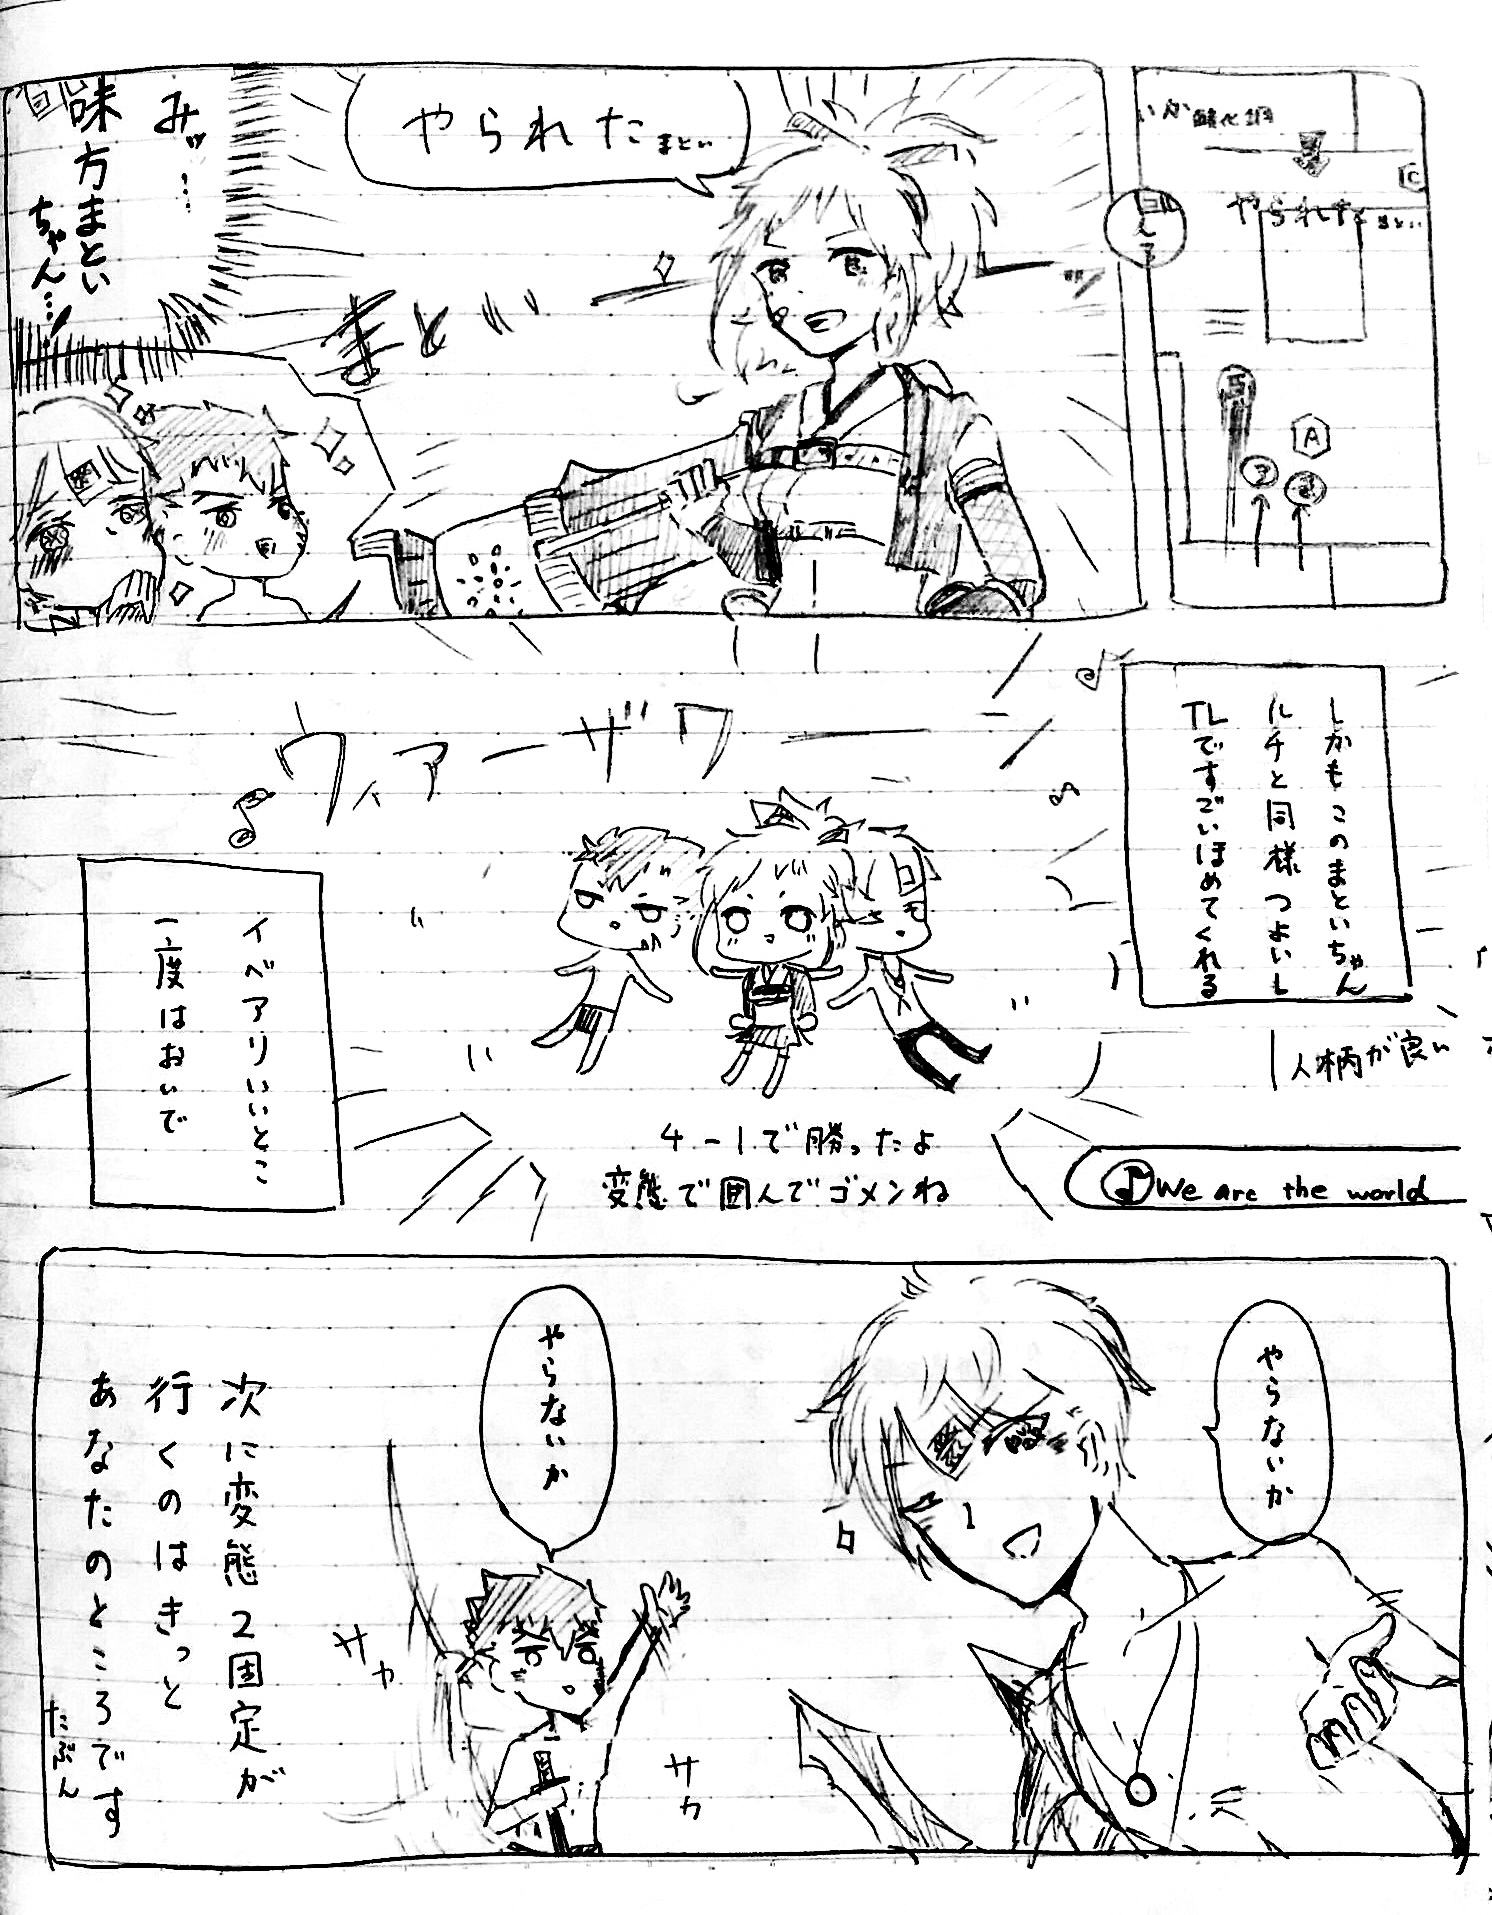 やられた まとい
C
A
やられた まとい
まとい
みッ…
味方まとい
ちゃん…!
しかもこのまといちゃん
ルチと同様つよいし
TLですごいほめてくれる
人柄が良い
ウィアーザワー
イベアリいいとこ
一度はおいで
4-1で勝ったよ
変態で囲んでゴメンね
We are the world
やらないか
やらないか
サカ
サカ
次に変態2固定が
行くのはきっと
あなたのところです
たぶん